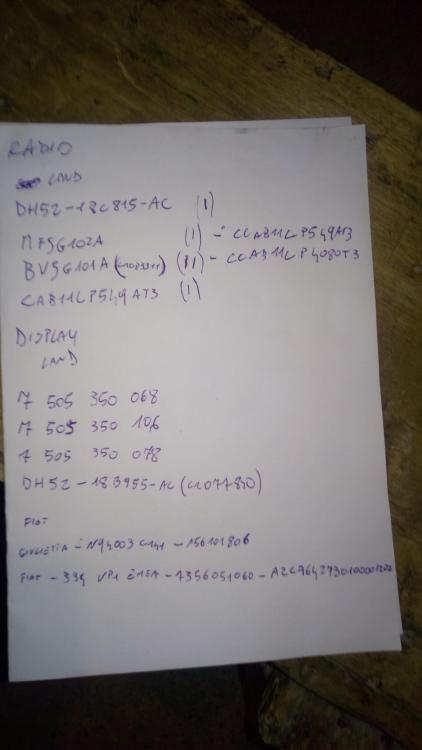 RADIO
LAND
DH52-18C815-AC (1)
(1) - CCAB11LP549AT3
BVSG101A (11) - CCAB11LP4080T3
CAB11LP549AT3 (1)
DISPLAY
LAND
7 505 350 068
7 505 350 106
7 505 350 078
DH52-183955-AC (LR077870)
FIAT
GIULIETTA - 156101806
FIAT - 334 VP1 - 7356051060